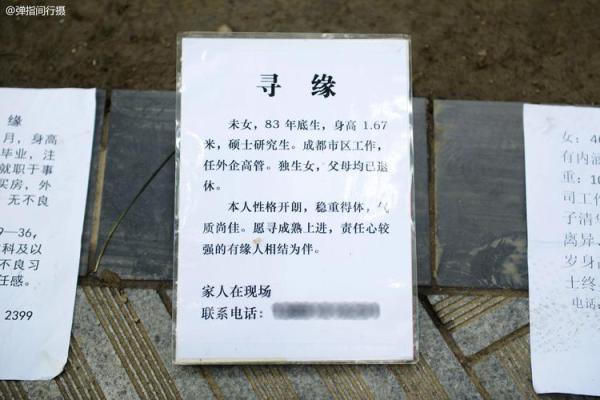 @弹指间行摄
寻 缘
未女，83 年底生，身高 1.67
米，硕士研究生。成都市区工作，
任外企高管。独生女，父母均已退
休。
本人性格开朗，稳重得体，气
质尚佳。愿寻成熟上进，责任心较
强的有缘人相结为伴。
家人在现场
联系电话：
缘
月，身高
毕业，注
就职于事
买房，外
无不良
9—36，
科及以
不良习
任感。
2399
女：46
有内涵
重：10
司工作
子清华
离异、
岁身高
士终
电话